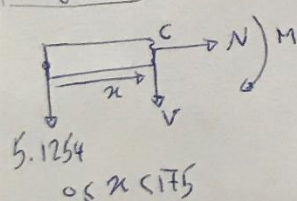 C
N
M
x
V
5.1254
0≤ x ≤175